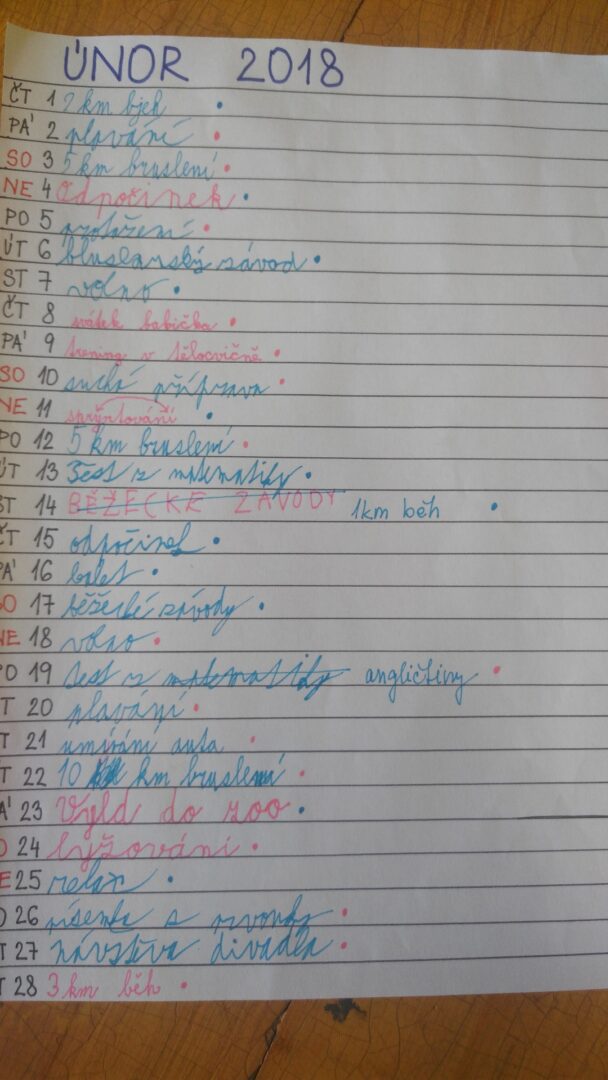 ÚNOR 2018
ČT 1 2 km bjeh
PÁ 2 plavání
SO 3 5 km bruslení
NE 4 Odpočinek
PO 5 protažení
ÚT 6 bluslarský závod
ST 7 volno
ČT 8 svátek babička
PÁ 9 trening v tělocvičně
SO 10 suchá příprava
NE 11 spryntování
PO 12 5 km bruslení
ÚT 13 Test z matematiky
ST 14 BĚŽECKÉ ZÁVODY 1km běh
ČT 15 odpočinek
PÁ 16 balet
SO 17 běžecké závody
NE 18 volno
PO 19 test z matematiky angličtiny
T 20 plavání
T 21 umívání auta
T 22 10 km bruslení
Á 23 Vyld do zoo
O 24 lyžování
E 25 relax
O 26 písenka s rvonky
T 27 návštěva divadla
T 28 3 km běh